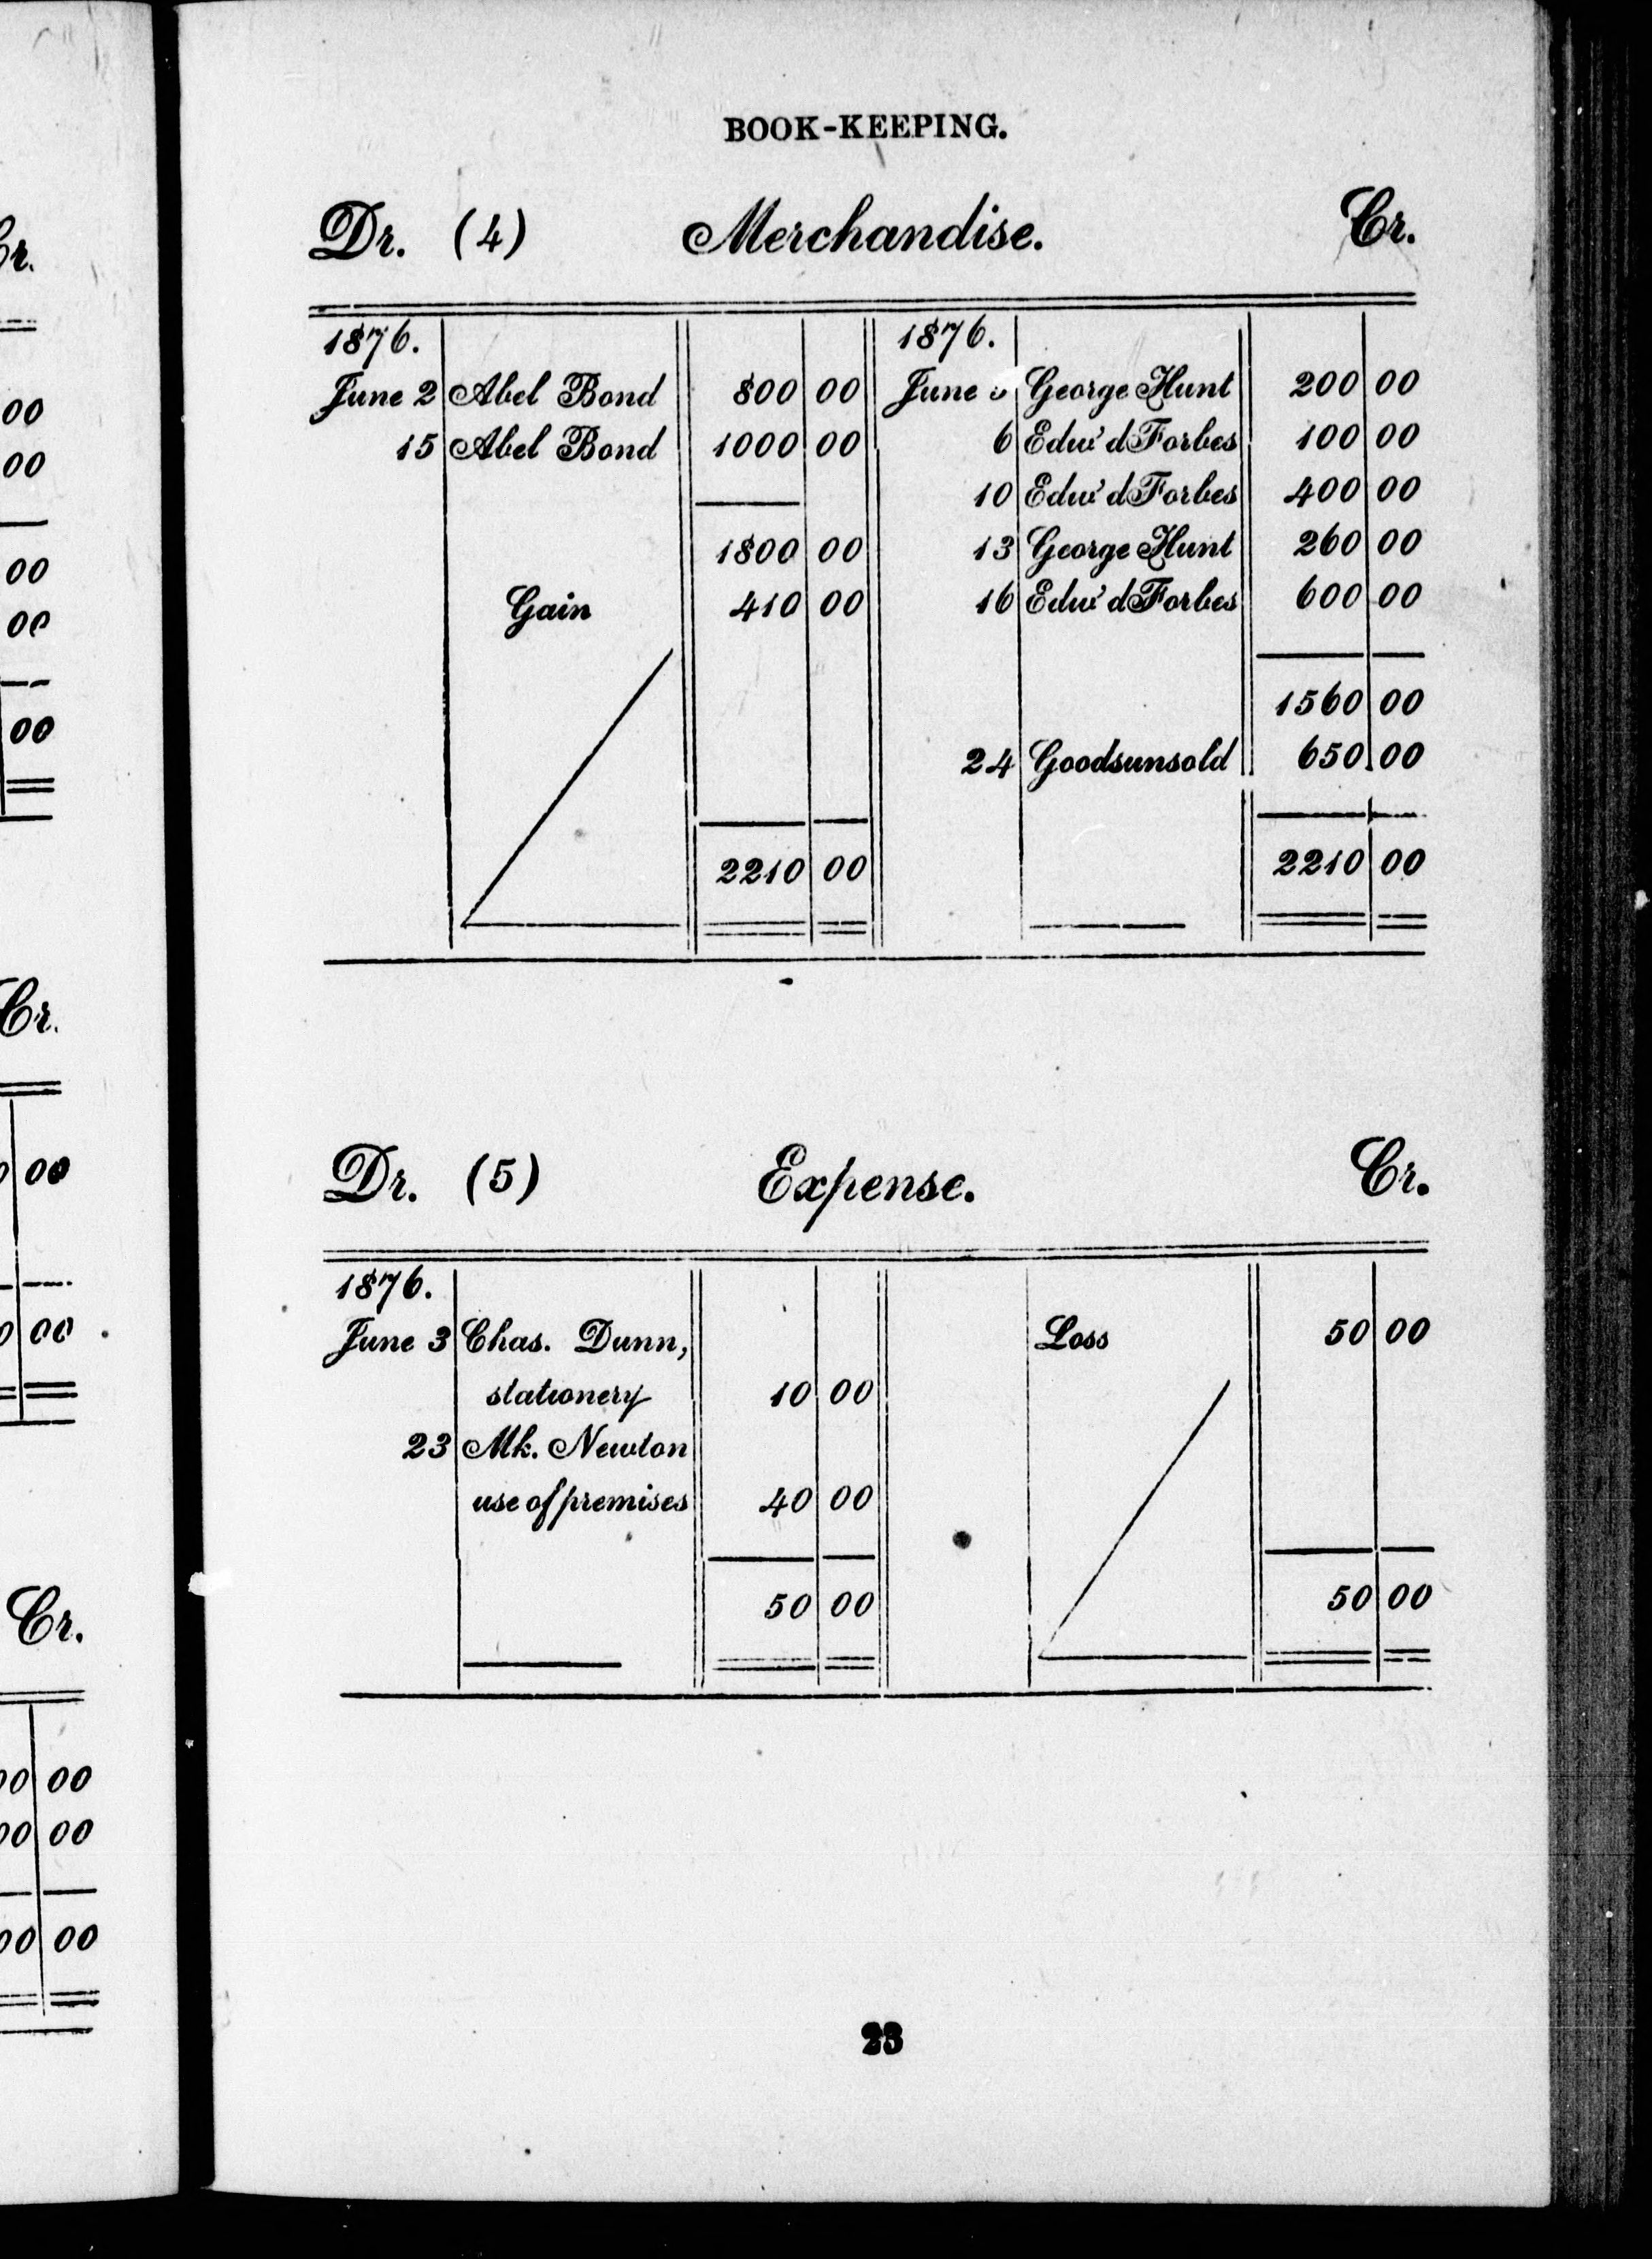 BOOK-KEEPING.
Dr. (4) Merchandise. Cr.
1876. 1876.
June 2 Abel Bond 800 00 June George Hunt 200 00
15 Abel Bond 1000 00 6 Edw'd Forbes 100 00
10 Edw'd Forbes 400 00
1800 00 13 George Hunt 260 00
Gain 410 00 16 Edw'd Forbes 600 00
1560 00
24 Goods unsold 650 00
2210 00 2210 00
Dr. (5) Expense. Cr.
1876.
June 3 Chas. Dunn, Loss 50 00
stationery 10 00
23 Mk. Newton
use of premises 40 00
50 00 50 00
23
Cr.
00
00
00
00
00
Cr.
00
00
Cr.
00
00
00